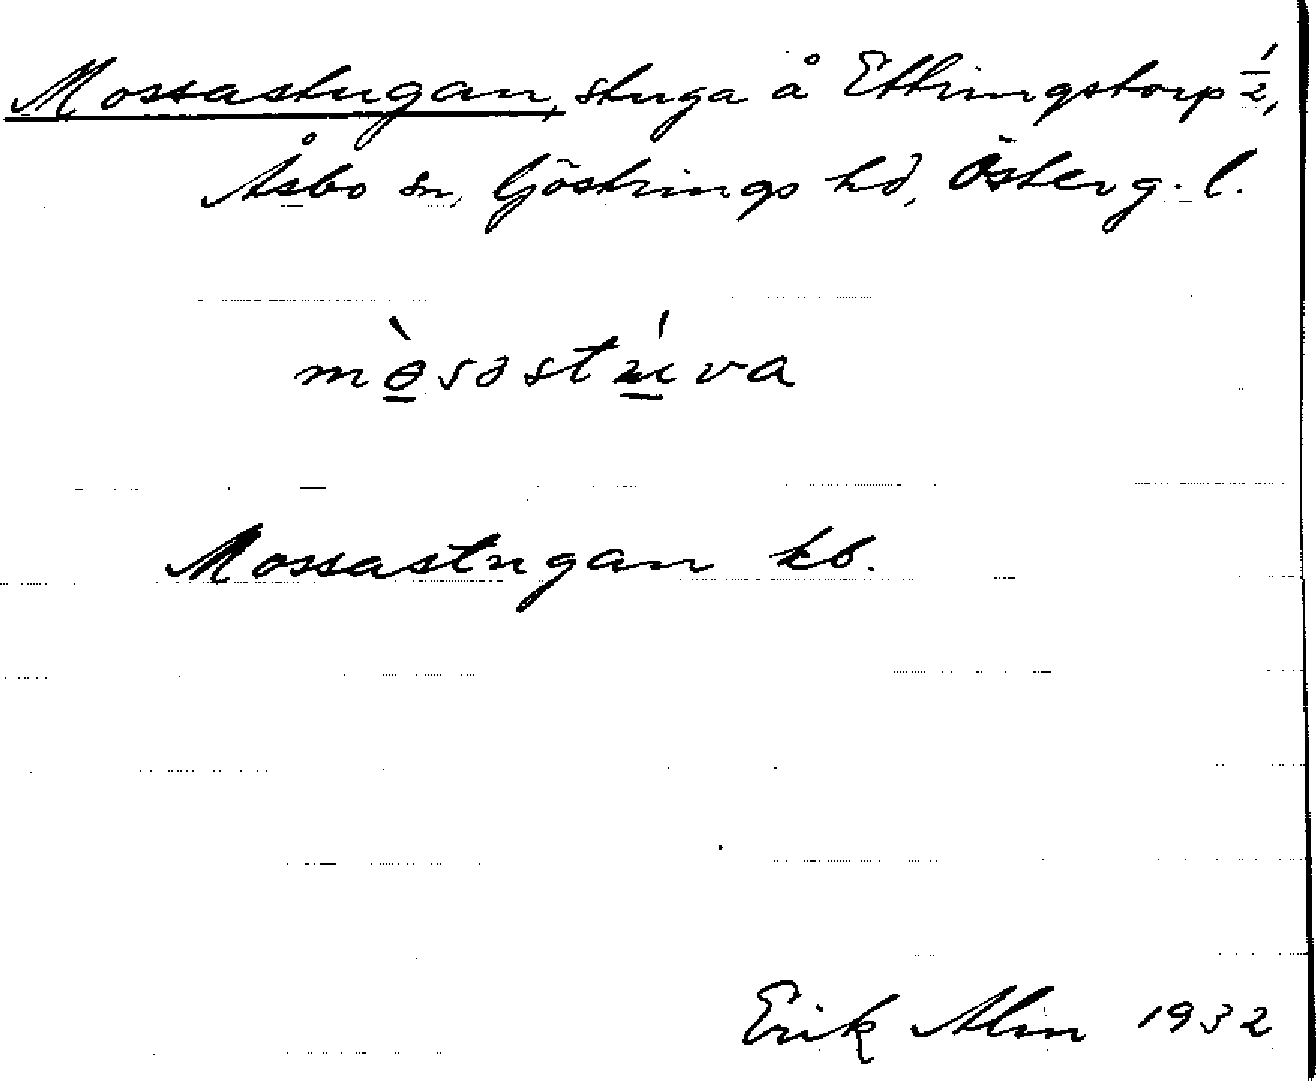 Mossastugan, stuga å Ettingstorp 1/2,
Åsbo sn, Göstrings hd, Österg. l.
mə̀səstúva
Mossastugan kb.
Erik Alm 1932